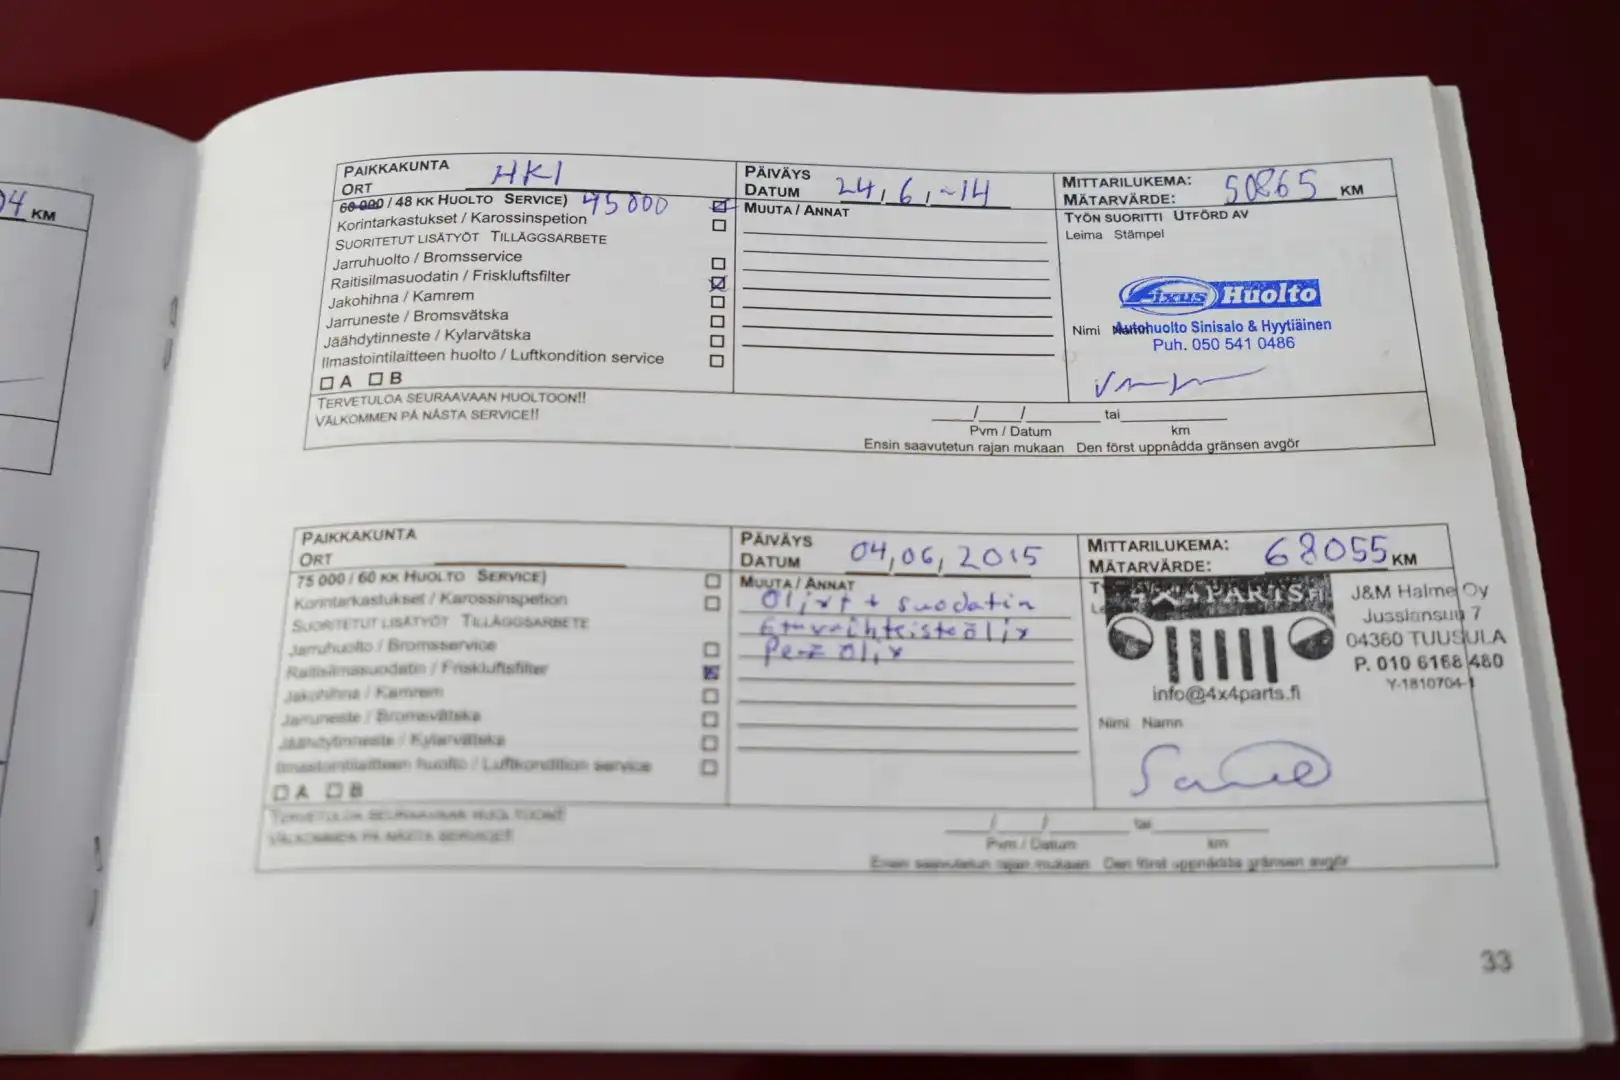 04 KM
PAIKKAKUNTA
ORT HKI
PÄIVÄYS
DATUM 24,6,-14
MITTARILUKEMA:
MÄTARVÄRDE: 50865 KM
60 000 / 48 KK HUOLTO SERVICE) 45000
Korintarkastukset / Karossinspetion
SUORITETUT LISÄTYÖT TILLÄGGSARBETE
Jarruhuolto / Bromsservice
Raitisilmasuodatin / Friskluftsfilter
Jakohihna / Kamrem
Jarruneste / Bromsvätska
Jäähdytinneste / Kylarvätska
Ilmastointilaitteen huolto / Luftkondition service
A B
MUUTA / ANNAT
TYÖN SUORITTI UTFÖRD AV
Leima Stämpel
Fixus Huolto
Autohuolto Sinisalo & Hyytiäinen
Puh. 050 541 0486
Nimi Namn
TERVETULOA SEURAAVAAN HUOLTOON!!
VÄLKOMMEN PÅ NÄSTA SERVICE!!
/ / tai
Pvm / Datum km
Ensin saavutetun rajan mukaan Den först uppnådda gränsen avgör
PAIKKAKUNTA
ORT
PÄIVÄYS
DATUM 04,06,2015
MITTARILUKEMA:
MÄTARVÄRDE: 68055 KM
75 000 / 60 KK HUOLTO SERVICE)
Korintarkastukset / Karossinspetion
SUORITETUT LISÄTYÖT TILLÄGGSARBETE
Jarruhuolto / Bromsservice
Raitisilmasuodatin / Friskluftsfilter
Jakohihna / Kamrem
Jarruneste / Bromsvätska
Jäähdytinneste / Kylarvätska
Ilmastointilaitteen huolto / Luftkondition service
A B
MUUTA / ANNAT
Öljyt + suodatin
Perä öljy
4X4PARTS.FI
info@4x4parts.fi
J&M Halme Oy
Jusslansuu 7
04360 TUUSULA
P. 010 6168 480
Y-1810704-1
Nimi Namn
TERVETULOA SEURAAVAAN HUOLTOON!!
VÄLKOMMEN PÅ NÄSTA SERVICE!!
/ / tai
Pvm / Datum km
Ensin saavutetun rajan mukaan Den först uppnådda gränsen avgör
33